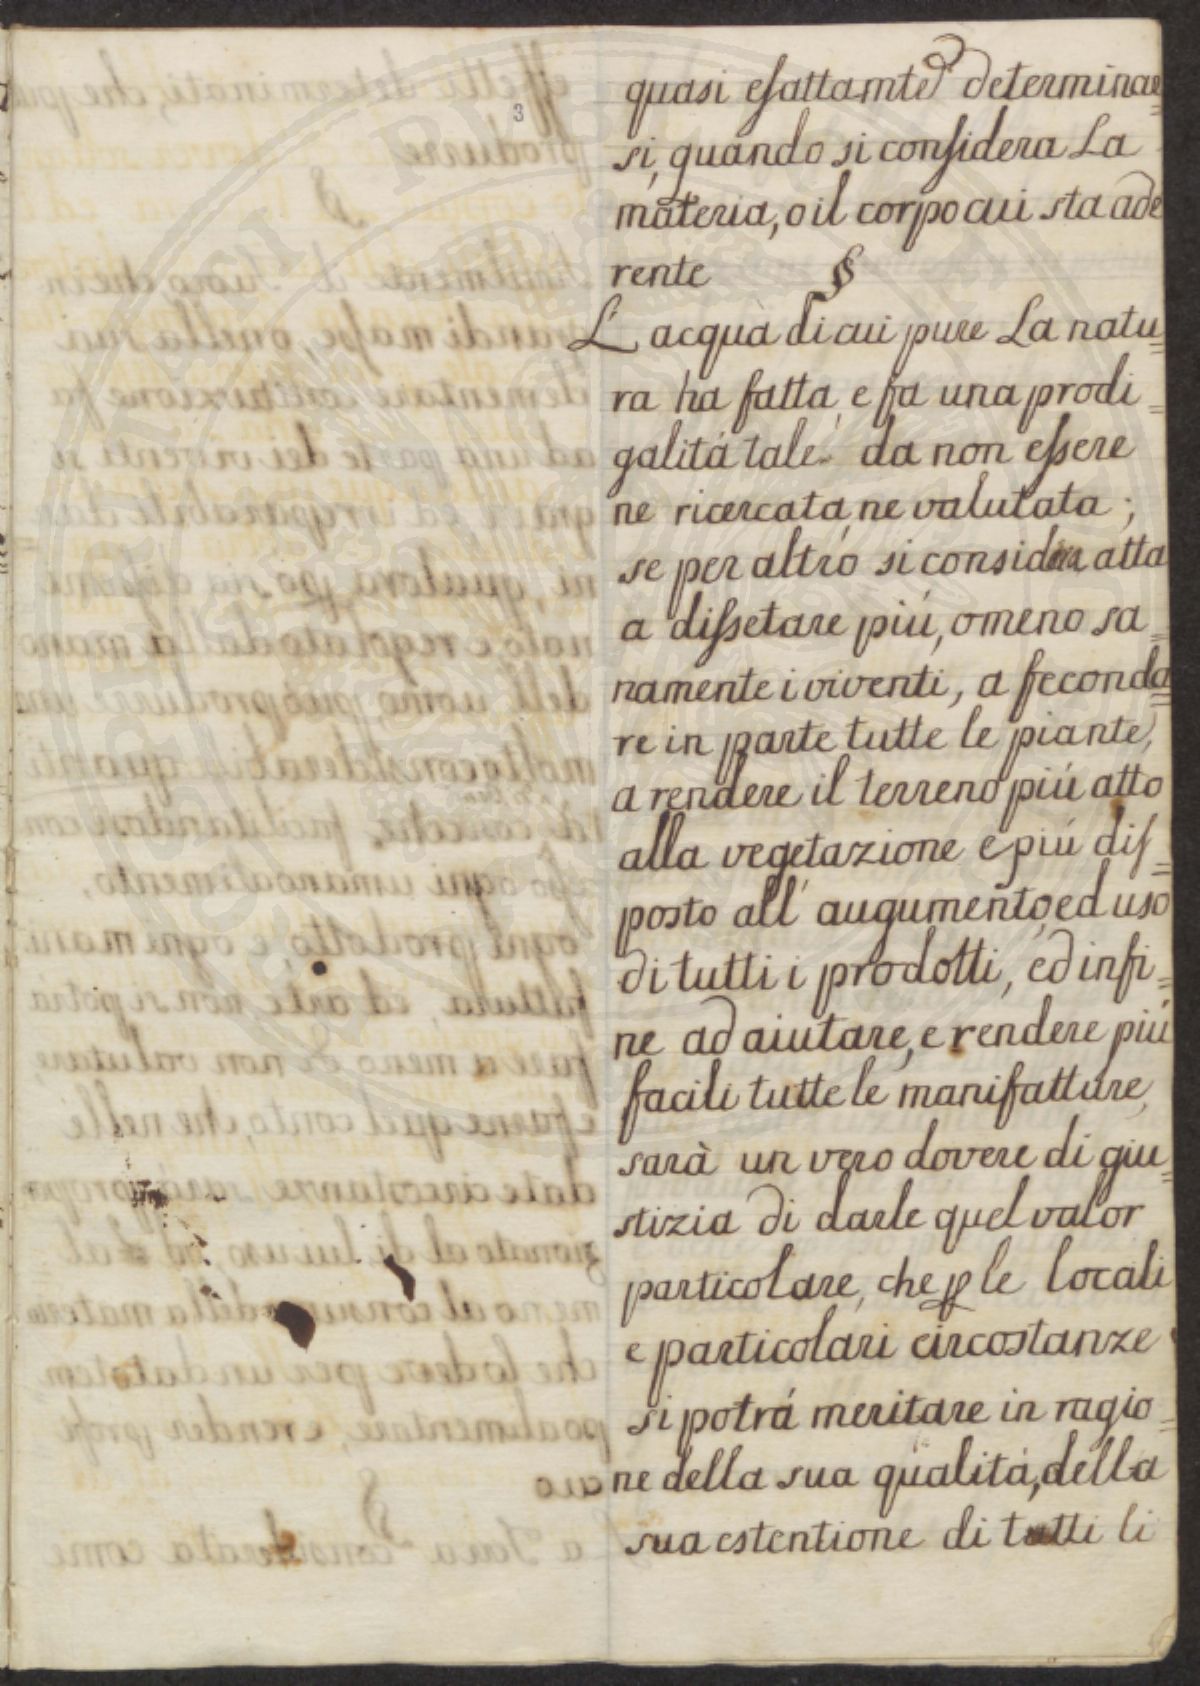 3
quasi esattamte determinar=
si, quando si considera La
materia, o il corpo cui sta ade
rente §
L'acqua di cui pure La natu=
ra ha fatta, e fa una prodi=
galitá tale da non essere
ne ricercata, ne valutata;
se per altro si considera atta
a dissetare piú, o meno sa=
namente i viventi, a feconda=
re in parte tutte le piante,
a rendere il terreno piú atto
alla vegetazione e piú dis=
posto all'augumento, ed uso
di tutti i prodotti, ed infi=
ne ad aiutare, e rendere piú
facili tutte le manifatture,
sarà un vero dovere di giu=
stizia di darle quel valor
particolare, che p le locali
e particolari circostanze
si potrá meritare in ragio=
ne della sua qualitá, della
sua estentione di tutti li